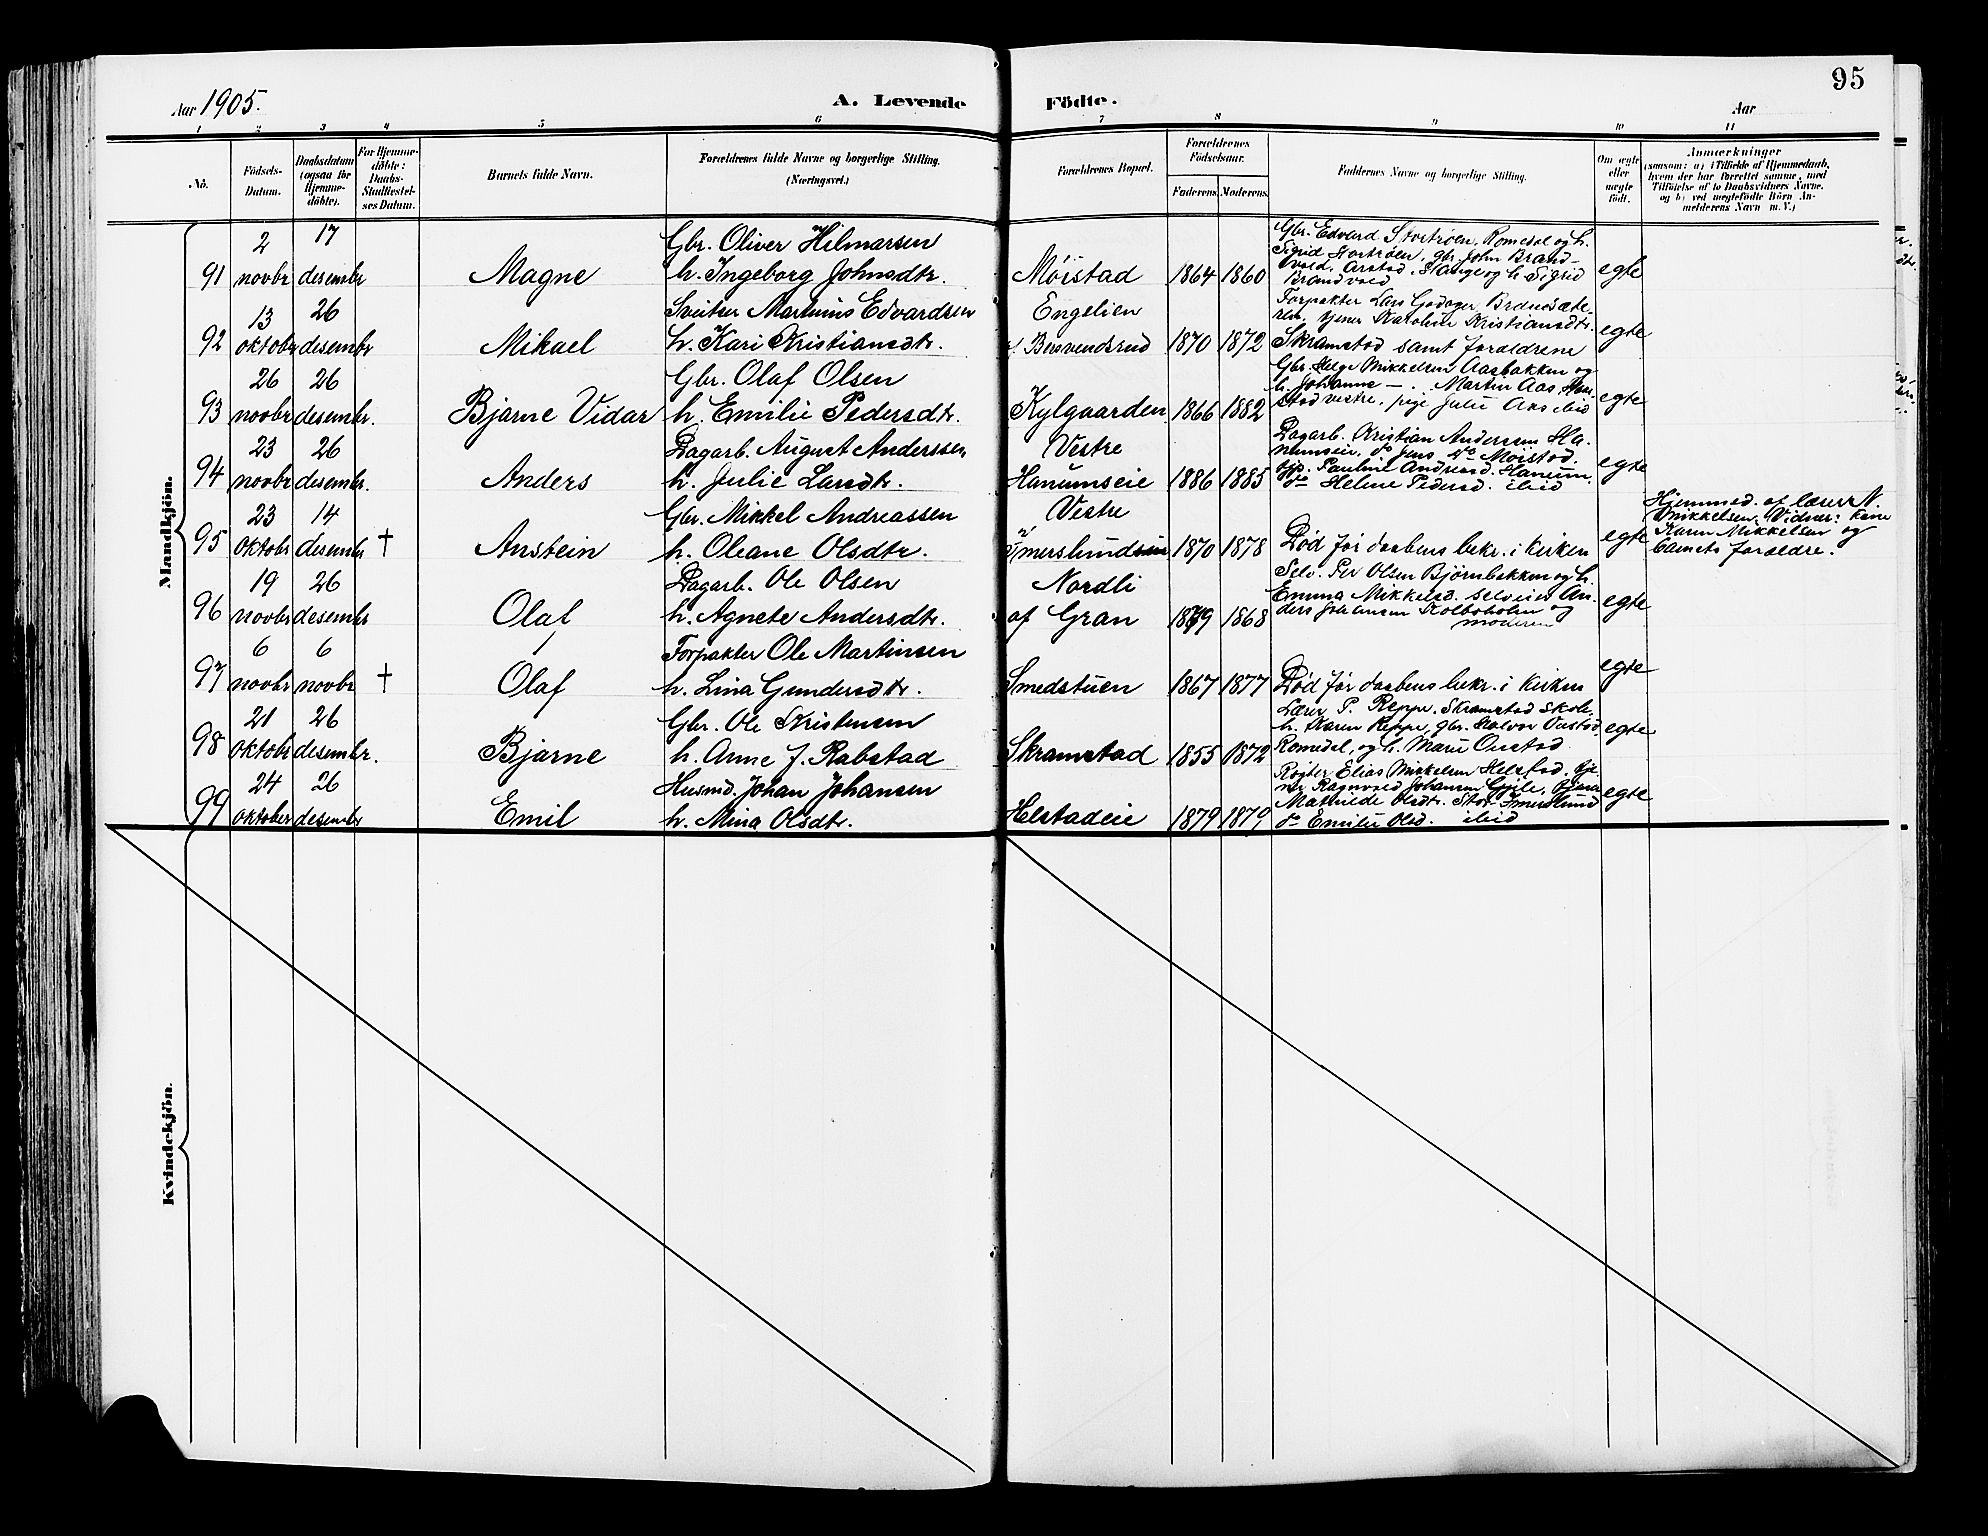 95
Aar 1905.
A. Levende Födte.
Aar
1 2 3 4 5 6 7 8 9 10 11
No.
Födsels-
Datum.
Daabsdatum
(ogsaa for
Hjemme-
döbte).
For Hjemme-
döbte:
Daabs-
Stadfæstel-
ses Datum.
Barnets fulde Navn.
Forældrenes fulde Navne og borgerlige Stilling.
(Næringsvei.)
Forældrenes Bopæl.
Forældrenes
Födselsaar.
Faderens. Moderens.
Faddernes Navne og borgerlige Stilling.
Om ægte
eller
uægte
födt.
Anmærkninger
(saasom: a) i Tilfælde af Hjemmedaab,
hvem der har forrettet samme, med
Tilföielse af to Daabsvidners Navne.
og b) ved uægtefödte Börn An-
melderens Navn m. V.)
Mandkjön.
91
2
novbr
17
desembr
Magne
Gbr. Oliver Hilmarsen
h. Ingeborg Johnsdtr.
Møistad
1864 1860
Gbr. Edvard Stortrøen, Romedal og h.
Sigrid Stortrøen, gbr. John Brand-
vold, Arstad, Stange og h. Sigrid
Brandvold
egte
92
13
oktobr
26
desembr
Mikael
Sveitser Martinius Edvardsen
h. Kari Kristiansdtr.
Engelien
Bersvendsrud
1870 1872
Forpakter Lars Godager, Brdnusæte-
ren, tjener Karoline Kristiansdtr.
Skramstad samt forældrene
egte
93
26
novbr
26
desembr.
Bjarne Vidar
Gbr. Olaf Olsen
h. Emilie Pedersdtr.
Kylgaarden
1866 1882
Gbr. Helge Mikkelsen Aasbakken og
h. Johanne — . Martin Aas,
stad vestre, pige Julie Aas ibid
egte
94
23
novbr
26
desembr.
Anders
Dagarb. August Anderssen
h. Julie Larsdtr.
Vestre
Hanumseie
1886 1885
Dagarb. Kristian Andersen Ha-
numseie, do Jens Møistad.
Pauline Andersd. Hanum.
do Helene Pedersd. ibid
egte
95
23
oktobr
14
desembr
†
Anstein
Gbr. Mikkel Andreassen
h. Oleane Olsdtr.
Vestre
Imerslund
1870 1878
Død før daabens bekr. i kirken
egte
Hjemmed. af lærer N.
Mikkelsen. Vidner: kone
Karen Mikkelsen og
barnets forældre.
96
19
novbr
26
desembr
Olaf
Dagarb. Ole Olsen
h. Agnete Andersdtr.
Nordli
af Gran
1879 1868
Selv. Per Olsen Bjørnbakken og h.
Emma Mikkelsd. selveier An-
ders Johansen Kolboholm og
moderen
egte
97
6
novbr
6
novbr
†
Olaf
Forpakter Ole Martinsen
h. Lina Gundersdtr.
Smedstuen
1867 1877
Død før daabens bekr. i kirken
egte
98
21
oktobr
26
desembr.
Bjarne
Gbr. Ole Kristensen
h. Anne J. Rabstad
Skramstad
1855 1872
Lærer P. Reppe, Skramstad Skole,
h. Karen Reppe, gbr. Halvor Oustad
Romedal, og h. Marie Oustad
egte
99
24
oktober
26
desembr
Emil
Husmd. Johan Johansen
h. Mina Olsdtr.
Helstadeie
1879 1879
Røgter Elias Mikkelsen Helstad, tje-
ner Ragnvald Johansen
Mathilde Olsdtr. Stor-Imerslund
do Emilie Olsd. ibid
egte
Kvindekjön.